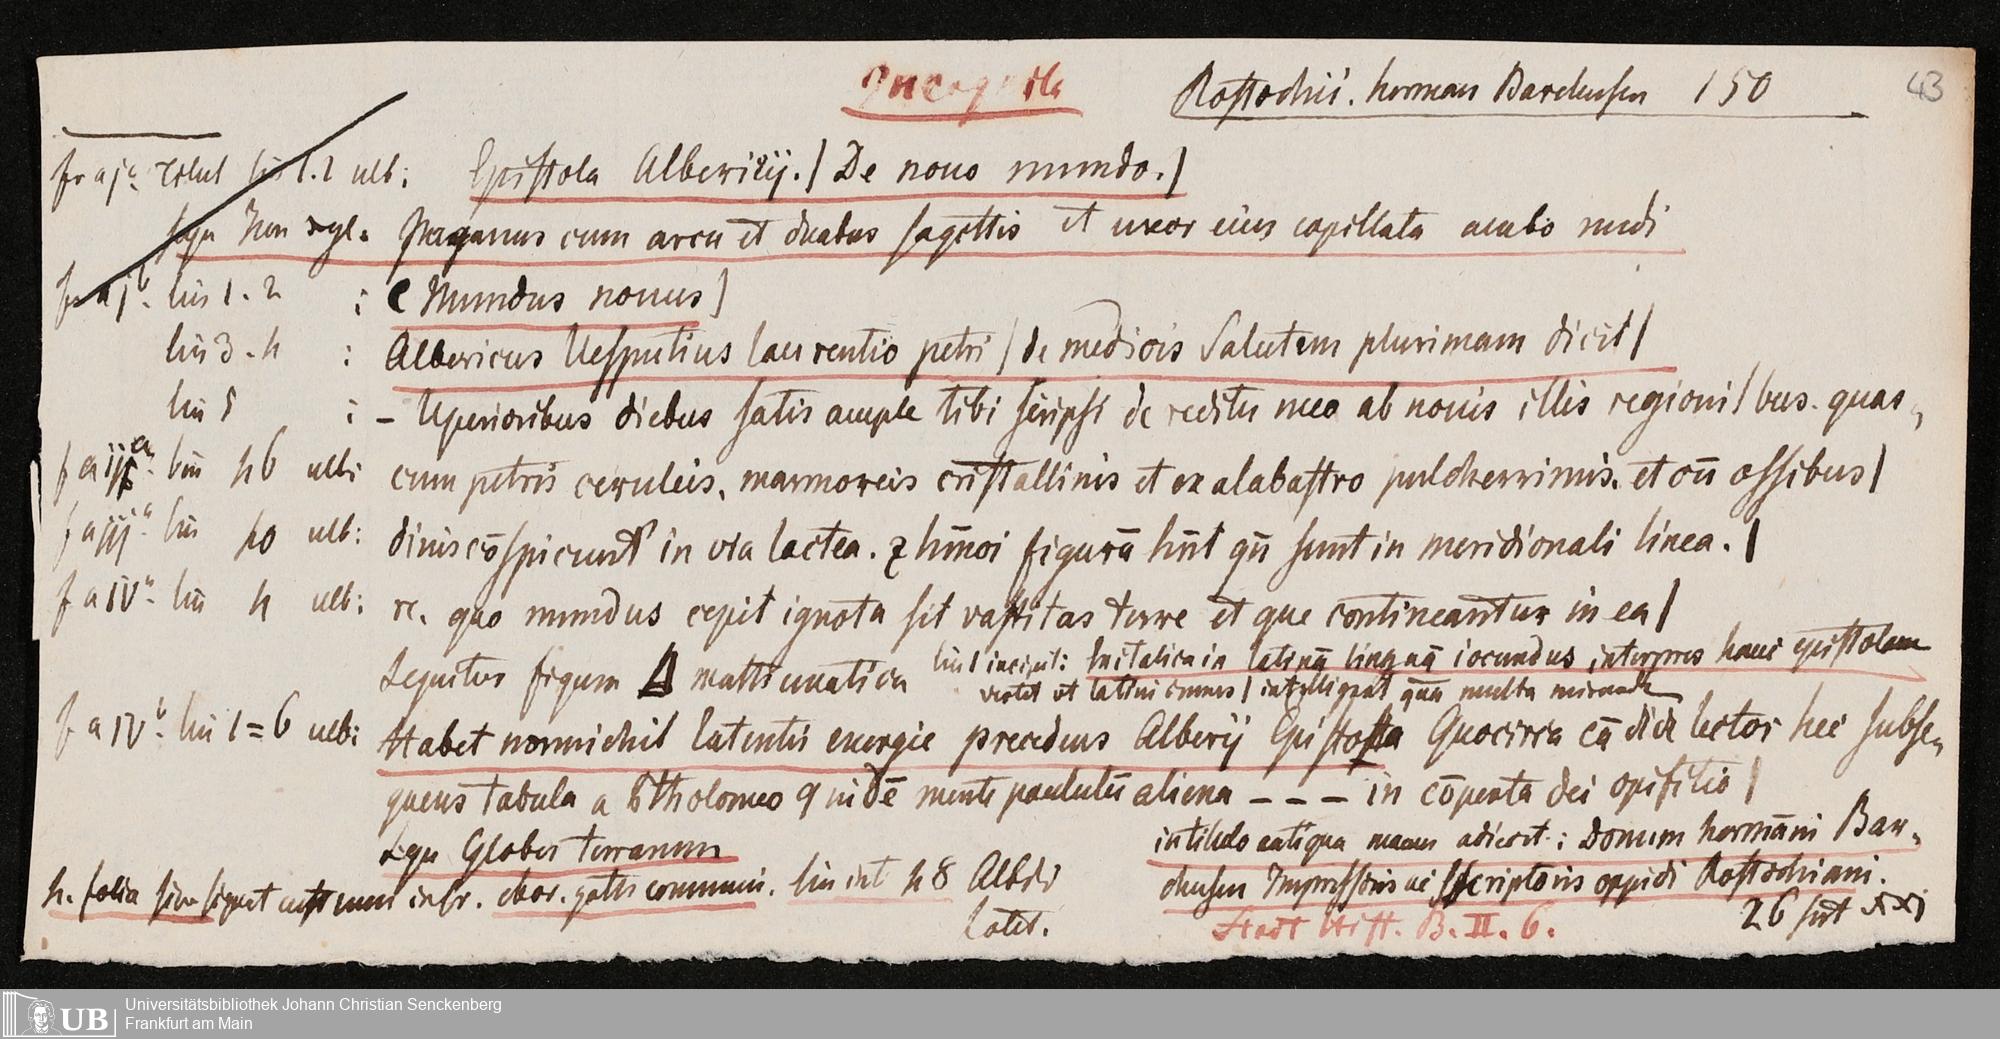 Incognita Rostochii. herman Barckusen 150 43
f aj a. lin 1.2 ulb: Epistola Albericij. / De nouo mundo. /
sequ xyl. Paganus cum arcu et duabus sagettis et uxor eius capillata ambo nudi
f aj b. lin 1.2 : ( Mundus nouus /
lin 3.4 : Albericus Uesputius laurentio petri / de medicis Salutem plurimam dicit /
lin 5 : - Uperioribus diebus satis ample tibi scripsi de reditu meo ab nouis illis regioni / bus. quas
f a iij a. lin 46 ulb: cum petris ceruleis. marmoreis cristallinis et ex alabastro pulcherrimis. et cū ossibus /
f aiij a. lin 40 ulb: dinis cōspiciunt in via lactea. z hm̄oi figurā hn̄t qn̄ sunt in meridionali linea. /
f a IV a. lin 4 ulb: re. quo mundus cepit ignota sit vastitas terre et que contineantur in ea /
Sequitur figura mathematica lin 1 incipit: Ex italica in latinā linguā iocundus interpres hanc epistolam
vertit ut latini omnes / intelligant quā multa miranda
f a IV b. lin 1=6 ulb: Habet nonnichil latentis energie precedens Alberij Epistola Quocirca cādidi lector hec subse
quens tabula a Ptholomeo quidē mente paululū aliena - - - in cōperta dei opificio /
sequ Globus terrarum intitulo antiqua manus adiecit: Donum hermāni Bar
4. folia sine signat custodum infr. char. goth communi. lin int 48 Albdr chusen Impressoris ac Scriptoris oppidi Rostochiani.
Latit. Stadt Hist. B. II. 6. 26 sut xxj
Universitätsbibliothek Johann Christian Senckenberg
UB Frankfurt am Main